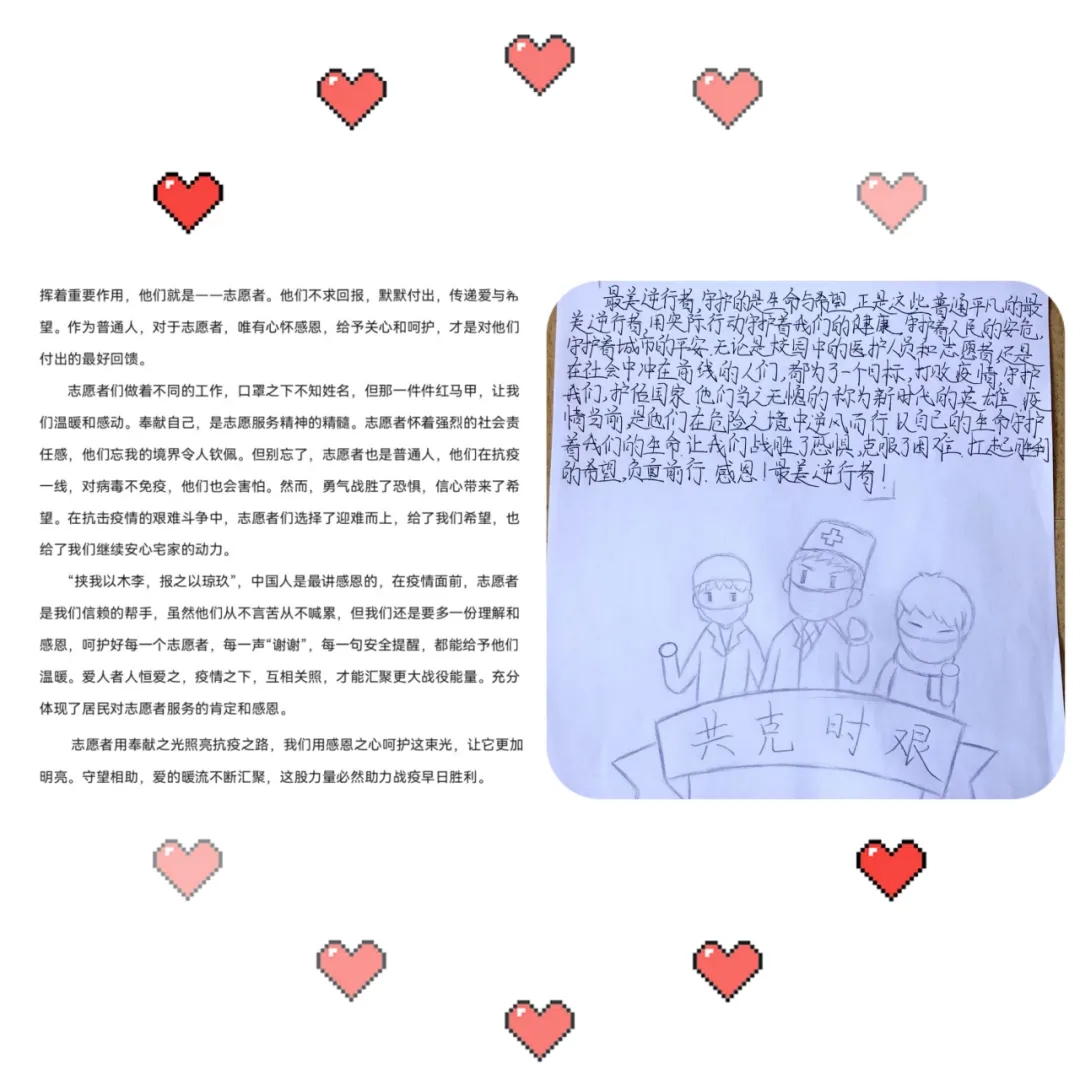 挥着重要作用，他们就是一一志愿者。他们不求回报，默默付出，传递爱与希
望。作为普通人，对于志愿者，唯有心怀感恩，给予关心和呵护，才是对他们
付出的最好回馈。
志愿者们做着不同的工作，口罩之下不知姓名，但那一件件红马甲，让我
们温暖和感动。奉献自己，是志愿服务精神的精髓。志愿者怀着强烈的社会责
任感，他们忘我的境界令人钦佩。但别忘了，志愿者也是普通人，他们在抗疫
一线，对病毒不免疫，他们也会害怕。然而，勇气战胜了恐惧，信心带来了希
望。在抗击疫情的艰难斗争中，志愿者们选择了迎难而上，给了我们希望，也
给了我们继续安心宅家的动力。
“挟我以木李，报之以琼玖”，中国人是最讲感恩的，在疫情面前，志愿者
是我们信赖的帮手，虽然他们从不言苦从不喊累，但我们还是要多一份理解和
感恩，呵护好每一个志愿者，每一声“谢谢”，每一句安全提醒，都能给予他们
温暖。爱人者人恒爱之，疫情之下，互相关照，才能汇聚更大战役能量。充分
体现了居民对志愿者服务的肯定和感恩。
志愿者用奉献之光照亮抗疫之路，我们用感恩之心呵护这束光，让它更加
明亮。守望相助，爱的暖流不断汇聚，这股力量必然助力战疫早日胜利。
最美逆行者，守护的是生命与希望。正是这些普通平凡的最
美逆行者，用实际行动守护着我们的健康，守护着人民的安危，
守护着城市的平安。无论是校园中的医护人员和志愿者还是
在社会中冲在前线的人们，都为了一个目标，打败疫情，守护
我们，护佑国家。他们当之无愧的称为新时代的英雄。疫
情当前，是他们在危险之境中逆风而行，以自己的生命守护
着我们的生命，让我们战胜了恐惧，克服了困难，扛起胜利
的希望，负重前行。感恩！最美逆行者！
共克时艰